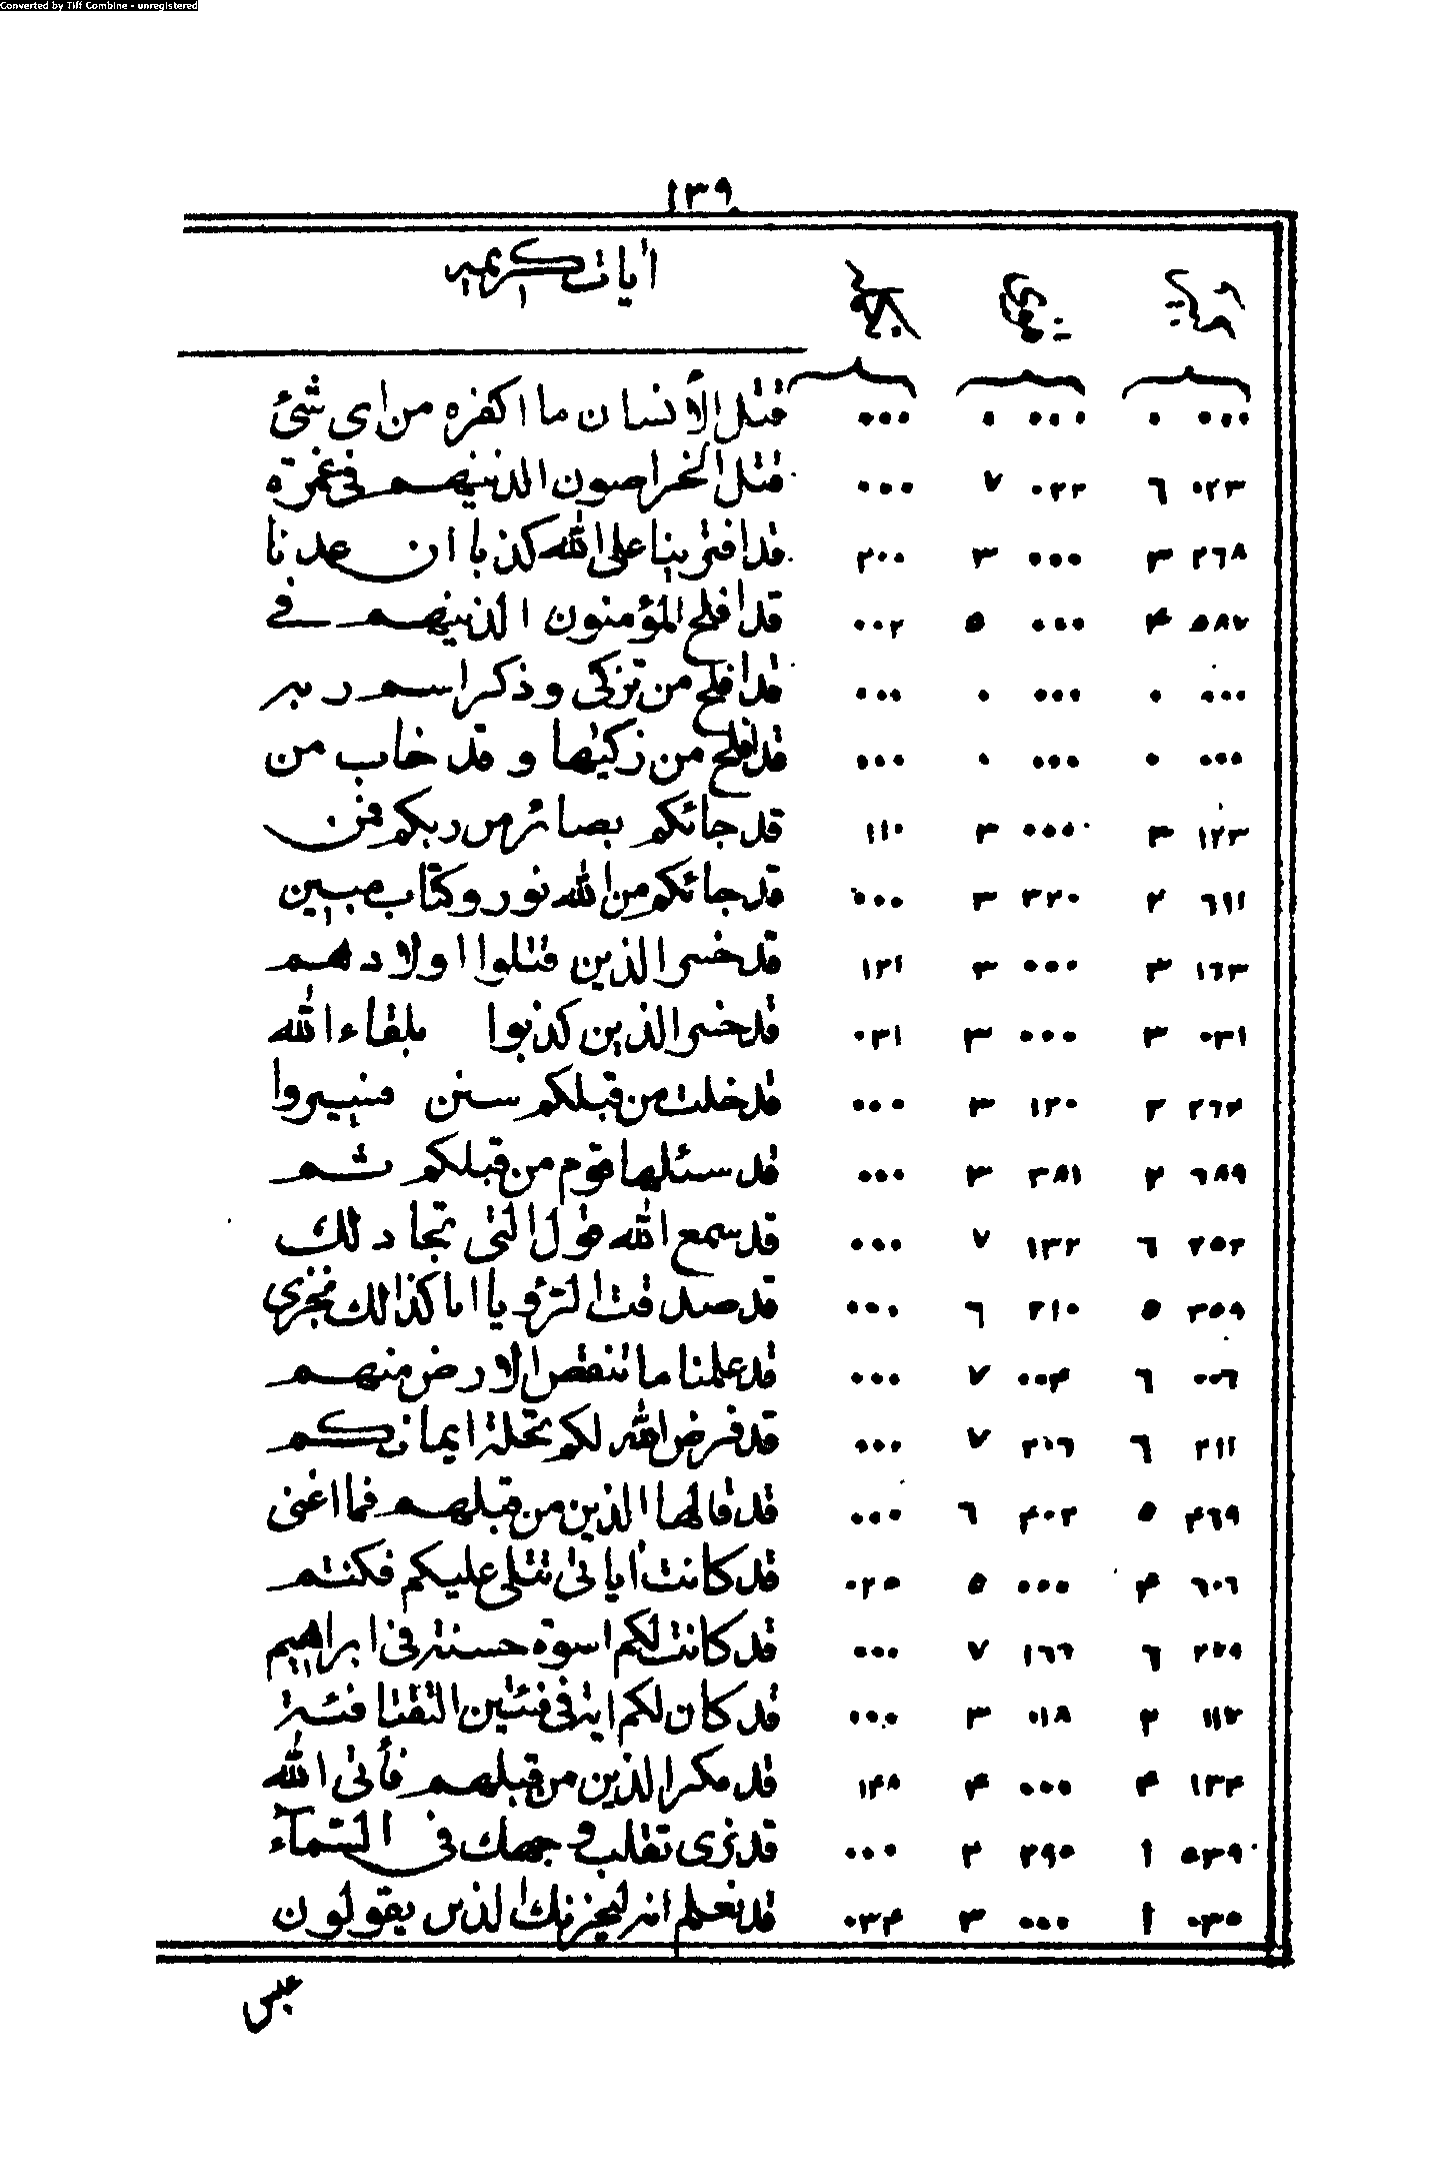 Converted by Tiff Combine - unregistered
١٣٩
اٰیات کریمہ
٠٠٠ ٠ ٠٠٠ ٠ ٠٠٠ قتل الأنسان ما اکفره من ای شئ
٠٢٣ ٦ ٠٢٢ ٧ ٠٠٠ قتل الخراصون الذینهم فی غمرة
٢٦٨ ٣ ٠٠٠ ٣ ٢٠٠ قد افترینا علی الله کذبا ان عدنا
٥٨٧ ۴ ٠٠٠ ٥ ٠٠٢ قد افلح المؤمنون الذینهم فی
٠٠٠ ٠ ٠٠٠ ٠ ٠٠٠ قد افلح من تزکی و ذکر اسم ربه
٠٠٠ ٠ ٠٠٠ ٠ ٠٠٠ قد افلح من زکیها و قد خاب من
١٢٣ ٣ ٠٠٠ ٣ ١١٠ قد جائکم بصائر من ربکم فمن
٦١١ ٢ ٣٢٠ ٣ ٠٠٠ قد جائکم من الله نور و کتاب مبین
١٦٣ ٣ ٠٠٠ ٣ ١٢١ قد خسر الذین قتلوا اولادهم
٠٣١ ٣ ٠٠٠ ٣ ٠٣١ قد خسر الذین کذبوا بلقاء الله
٢٦۴ ٢ ١٢٠ ٣ ٠٠٠ قد خلت من قبلکم سنن فسیروا
٦٨٩ ٢ ٣٨١ ٣ ٠٠٠ قد سئلها قوم من قبلکم ثم
٢٥٢ ٦ ١٣٢ ٧ ٠٠٠ قد سمع الله قول التی تجادلک
٣٥٩ ٥ ٢١٠ ٦ ٠٠٠ قد صدقت الرؤیا انا کذالک نجزی
٠٠٦ ٦ ٠٠۴ ٧ ٠٠٠ قد علمنا ما تنقص الارض منهم
٢١١ ٦ ٢٠٦ ٧ ٠٠٠ قد فرض الله لکم تحلة ایمانکم
۴٦٩ ٥ ۴٠٢ ٦ ٠٠٠ قد قالها الذین من قبلهم فما اغنی
٦٠٦ ۴ ٠٠٠ ٥ ٠٢٥ قد کانت اٰیاتی تتلی علیکم فکنتم
٢٢٩ ٦ ١٦٦ ٧ ٠٠٠ قد کانت لکم اسوة حسنة فی ابراهیم
١١٧ ٢ ٠١٨ ٣ ٠٠٠ قد کان لکم ایة فی فئتین التقتا فئة
١٣۴ ۴ ٠٠٠ ۴ ١۴٨ قد مکر الذین من قبلهم فأتی الله
٥٣٩ ١ ٢٩٥ ٢ ٠٠٠ قد نری تقلب وجهک فی السّمآء
٠٣٥ ١ ٠٠٠ ٣ ٠٣۴ قد نعلم انه لیحزنک الذین یقولون
عبس